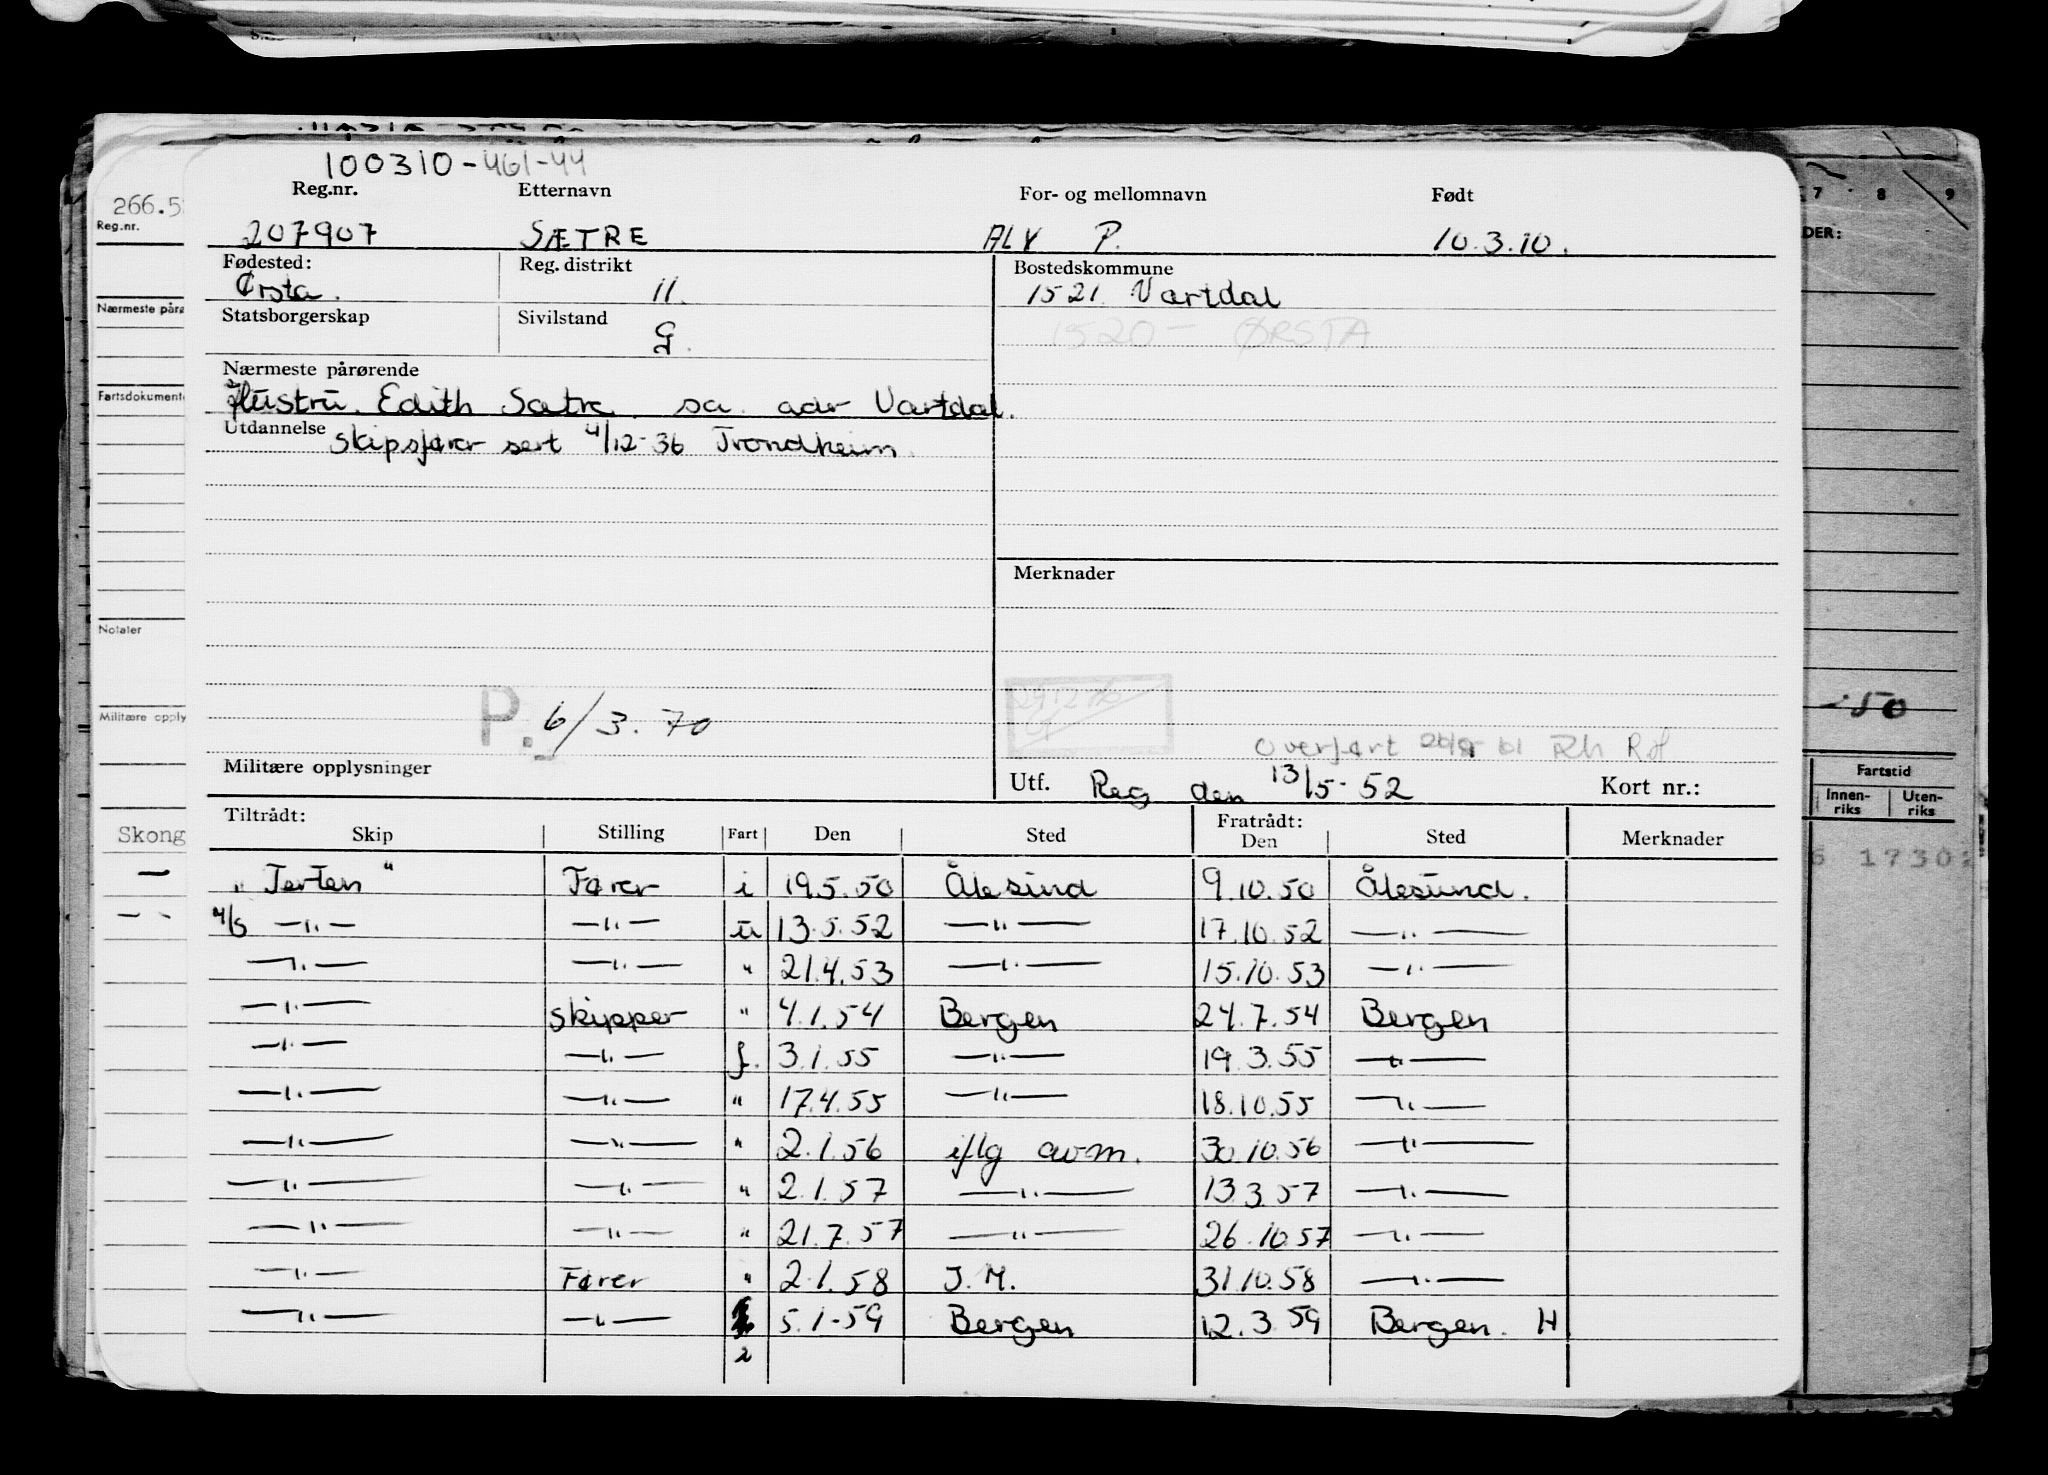 100310-461-44
Reg.nr. Etternavn For- og mellomnavn Født
207907 SÆTRE ALV P. 10.3.10.
Fødested: Reg. distrikt Bostedskommune
Ørsta. 11. 1521 Vartdal
Statsborgerskap Sivilstand 1520- ØRSTA
G.
Nærmeste pårørende
Hustru. Edith Sætre. sa. adr Vartdal.
Utdannelse skipsfører sert 4/12-36 Trondheim.
Merknader
P. 6/3.70
Overført Rh Rof
Militære opplysninger Utf. Reg den 13/5-52 Kort nr.:
Tiltrådt: Fratrådt:
Skip Stilling Fart Den Sted Den Sted Merknader
"Terten" Fører i 19.5.50 Ålesund 9.10.50 Ålesund.
—"— —"— u 13.5.52 —"— 17.10.52 —"—
—"— —"— " 21.4.53 —"— 15.10.53 —"—
—"— skipper " 4.1.54 Bergen 24.7.54 Bergen
—"— —"— f. 3.1.55 —"— 19.3.55 —"—
—"— —"— " 17.4.55 —"— 18.10.55 —"—
—"— —"— " 2.1.56 iflg avm. 30.10.56 —"—
—"— —"— " 2.1.57 —"— 13.3.57 —"—
—"— —"— " 21.7.57 —"— 26.10.57 —"—
—"— Fører " 2.1.58 J.M. 31.10.58 —"—
—"— —"— 5.1-59 Bergen 12.3.59 Bergen. H
2
266.5
Reg.nr.
Nærmeste pårø
Fartsdokument
Notater
Militære opply
Skong
7 8 9
DER:
-50
Fartstid
Innen-riks Uten-riks
17302